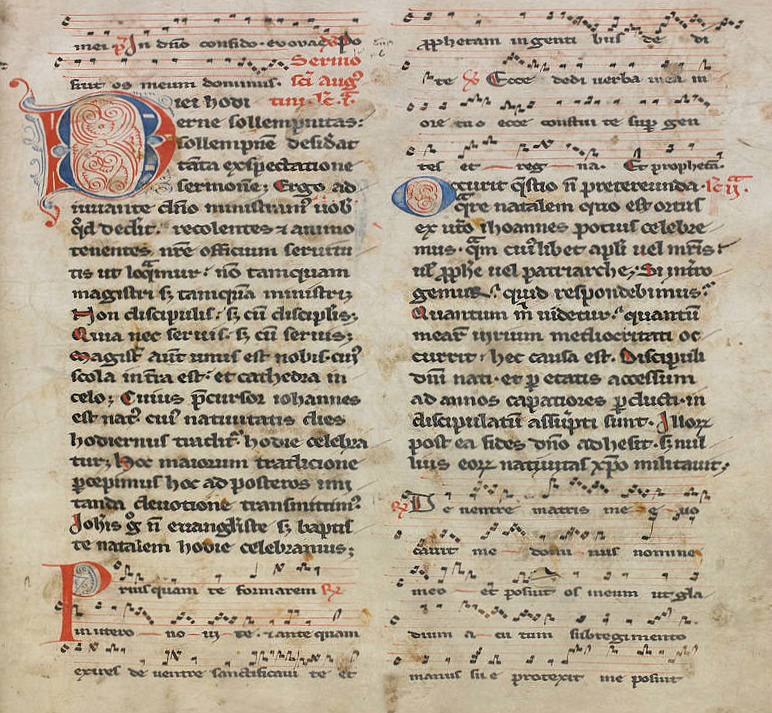 mei ℟ In dn̄o confido. evovae. Po
Sermo
suit os meum dominus. sc̄i aug⁹
Diei hodi tini. lc̄. i.
erne sollempnitas:
sollempne desid'at
tāta exspectatione
sermonē; Ergo ad
iuuante dn̄o ministram⁹ uob̄
qd̄ dedit. recolentes ⁊ animo
tenentes nr̄e officium seruitu
tis ut loq̄mur: nō tamquam
magistri sꝫ tamquā ministri;
Non discipulis: sꝫ cū discipl̄is;
Quia nec seruis: sꝫ cū seruis;
Magist̄ aūt unus est nobis. cui⁹
scola in t̄ra est: et cathedra in
celo; Cuius p̄cursor iohannes
est nat⁹. cui⁹ natiuitatis dies
hodiernus tradit̄. hodie celebra
tur; Hoc maiorum traditione
ꝑcepimus hoc ad posteros imi
tanda deuotione transmittim⁹.
Joh̄is g̊ n̄ euangl̄iste sꝫ baptis
te natalem hodie celebramus;
Priusquam te formarem ℟
in utero no ui te. ⁊ ante quam
exires de uentre sanctificaui te et
prophetam in genti bus de di
te ℣ Ecce dedi uerba mea in
ore tuo ecce constitui te suꝑ gen
tes et reg na. Et prophetā.
Occurit q̄stio n̄ pretereunda. lc̄ ii.
q̄re natalem quo est ortus
ex ut̄o iohannes potius celebre
mus. q̄m cui⁹libet apl̄i uel mr̄is:
ul̄ ꝓph̄e uel patriarche; Si int̄ro
gemur: quid respondebimus:
Quantum m̄ uidetur: quantū
mear̄ uirium mediocritati oc
currit: hec causa est. Discipuli
dn̄i nati. et ꝑ etatis accessum
ad annos capatiores ꝑducti. in
discipulatū assūpti sunt. Illoꝝ
post ea fides dn̄o adhesit. sꝫ nul
lius eoꝝ natiuitas xp̄o militauit;
℟ De uentre matris me e uo
cauit me domi nus nomine
meo et posuit os meum ut gla
dium a cu tum sub tegimento
manus su e protexit me posuit